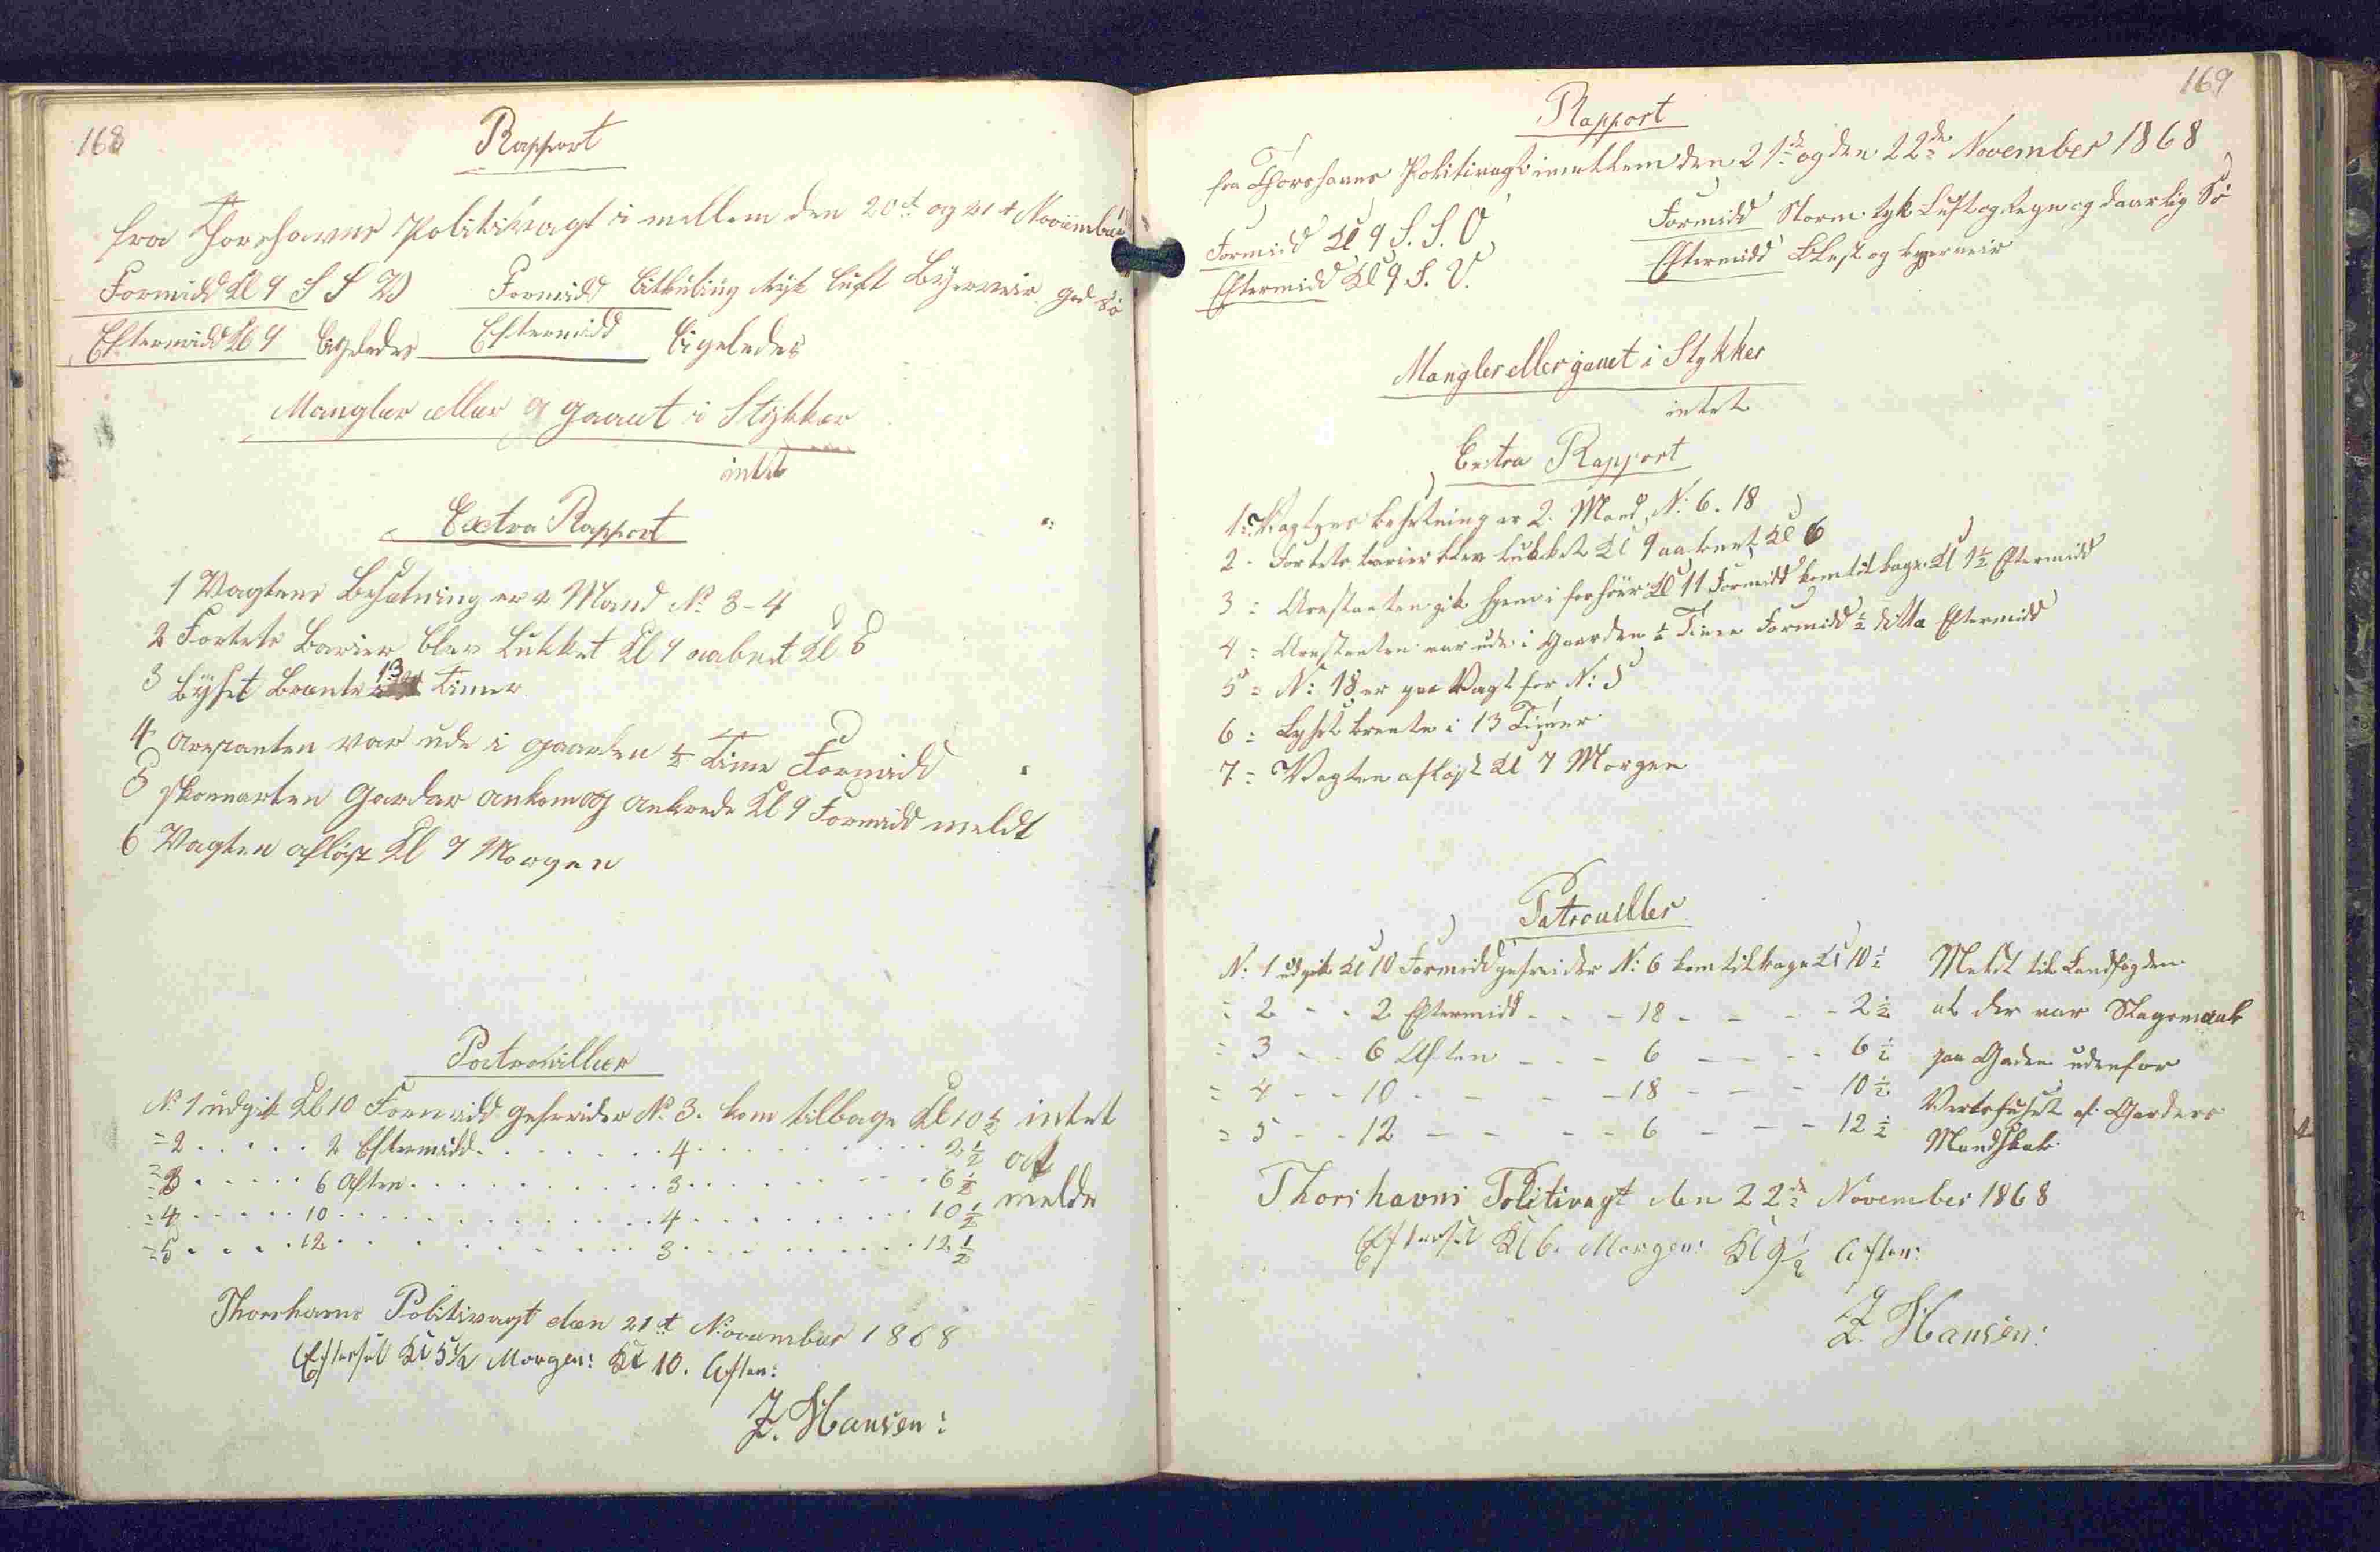 168
Rapport
fra Thorshavns Politivagt i mellem den 20de og 21 t November
Formidd Kl 9 S S V Formidd Litkuling tyk luft Byeveir god Sö
Eftermidd Kl 9 ligeledes Eftermidd ligeledes
Mangler eller gaaet i Stykker
intet
Extra Rapport
1 Vagtens Besætning er 2 Mand No 3-4
2 Fortets Barier blev lukket Kl 9 aabnet Kl 6
3 Lyset brænte 13 timer
4 Arestanten var ude i gaarden ½ Time Formidd
5 Skonnerten Gardar ankom og ankrede Kl 9 Formidd meldt
6 Vagten aflöst Kl 7 Morgen
Patrouiller
No 1 udgik Kl 10 Formidd gefreider No 3. kom tilbage Kl 10 ½ intet
= 2 . . . . . 2 Eftermidd . . . . . . . 4 . . . . . . . . . 2 ½ at
= 3 . . . . . 6 Aften . . . . . . . . . 3 . . . . . . . . . 6 ½ melde
= 4 . . . . . 10 . . . . . . . . . . . 4 . . . . . . . . 10 ½
= 5 . . . . 12 . . . . . . . . . . 3 . . . . . . . . 12 ½
Thorshavns Politivagt den 21 t November 1868
Efterset Kl 5½ Morgen: Kl 10. Aften:
J. Hansen:
169
Rapport
fra Thorshavns Politivagt imellem den 21de og den 22de November 1868
Formidd Kl 9 S. S. O Formidd Storm tyk Luft og Regn og daarlig Sö
Eftermidd Kl 9 S. V. Eftermidd Blest og byeveir
Mangler eller gaaet i Stykker
intet
Extra Rapport
1 = Vagtens besetning er 2. Mand N: 6. 18
2 - Fortets barier blev lukket Kl 9 aabnet Kl 6
3 = Arestanten gik hjem i forhöer Kl 11 Formidd kom tilbage Kl 1½ Eftermidd
4 = Arestanten var ude i Gaarden ½ Time Formidd ½ ditto Eftermidd
5 = N: 18 er paa Vagt for N: 5
6 = Lyset brente i 13 Timer
7 = Vagten aflöst Kl 7 Morgen
Patrouiller
N: 1 udgik Kl 10 Formidd gefreider N: 6 kom tilbage Kl 10 ½ Meldt til Landfogden
= 2 - - 2 Eftermidd - - - 18 - - - - 2 ½ at der var Slagsmaal
= 3 - - 6 Aften - - - 6 - - - - 6 ½ paa Gaden udenfor
= 4 - - 10 - - - - 18 - - - 10 ½ Vertshuset af Gardars
= 5 - - 12 - - - - 6 - - - 12 ½ Mandskab
Thorshavns Politivagt den 22de November 1868
Efterset Kl 6. Morgen: Kl 9½ Aften:
J. Hansen: